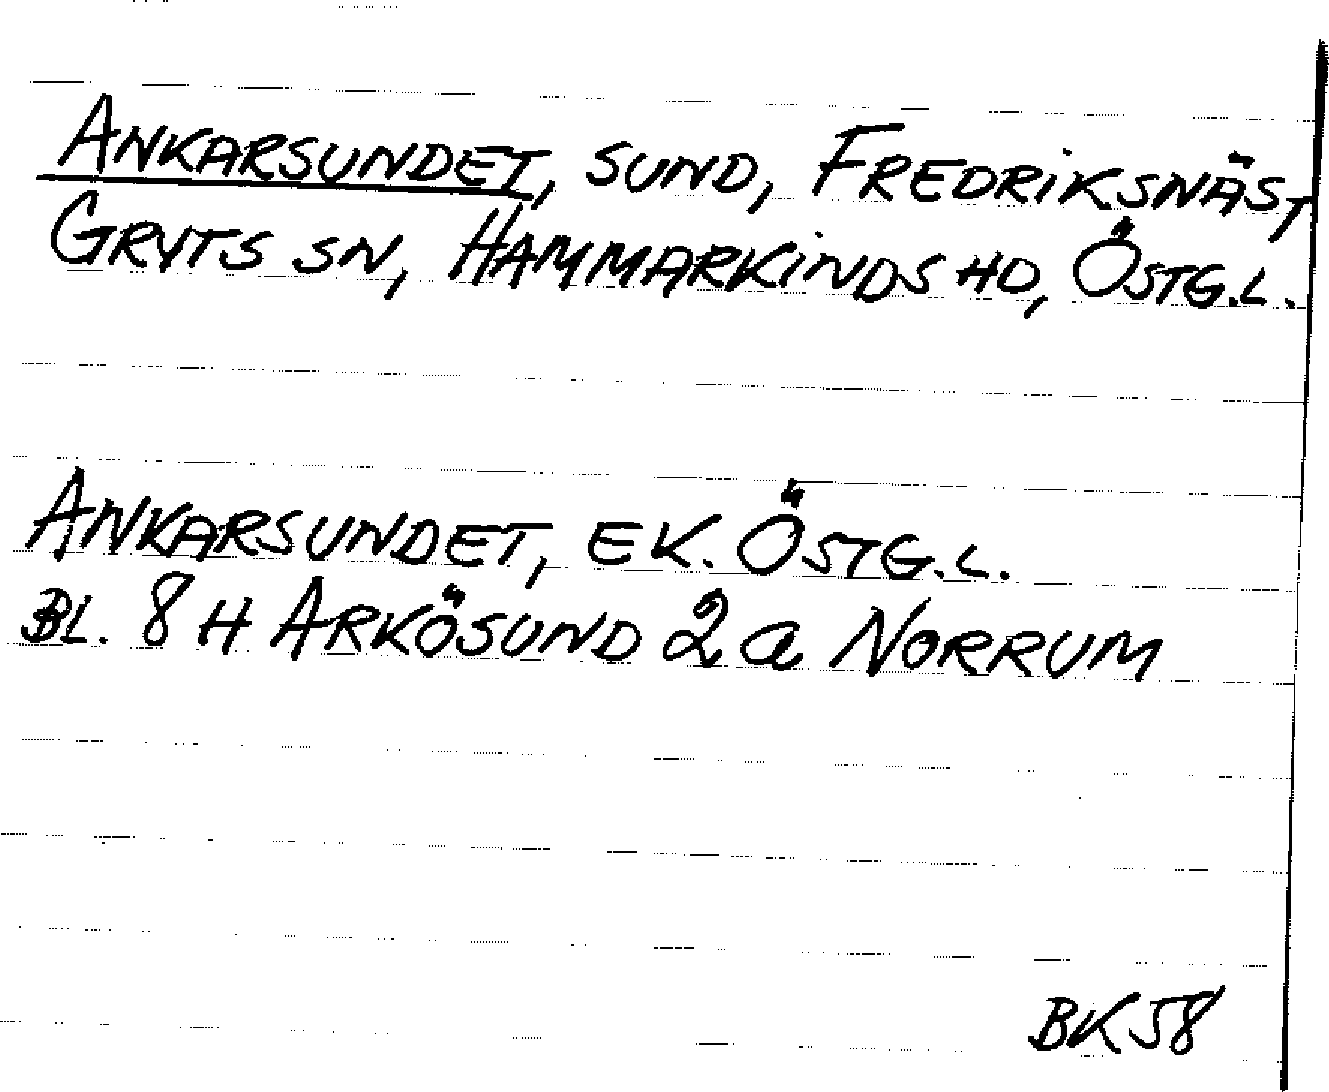 ANKARSUNDET, SUND, FREDRIKSNÄST,
GRYTS SN, HAMMARKINDS HD, ÖSTG.L.
ANKARSUNDET, EK. ÖSTG.L.
BL. 8 H ARKÖSUND 2 a NORRUM
BK58